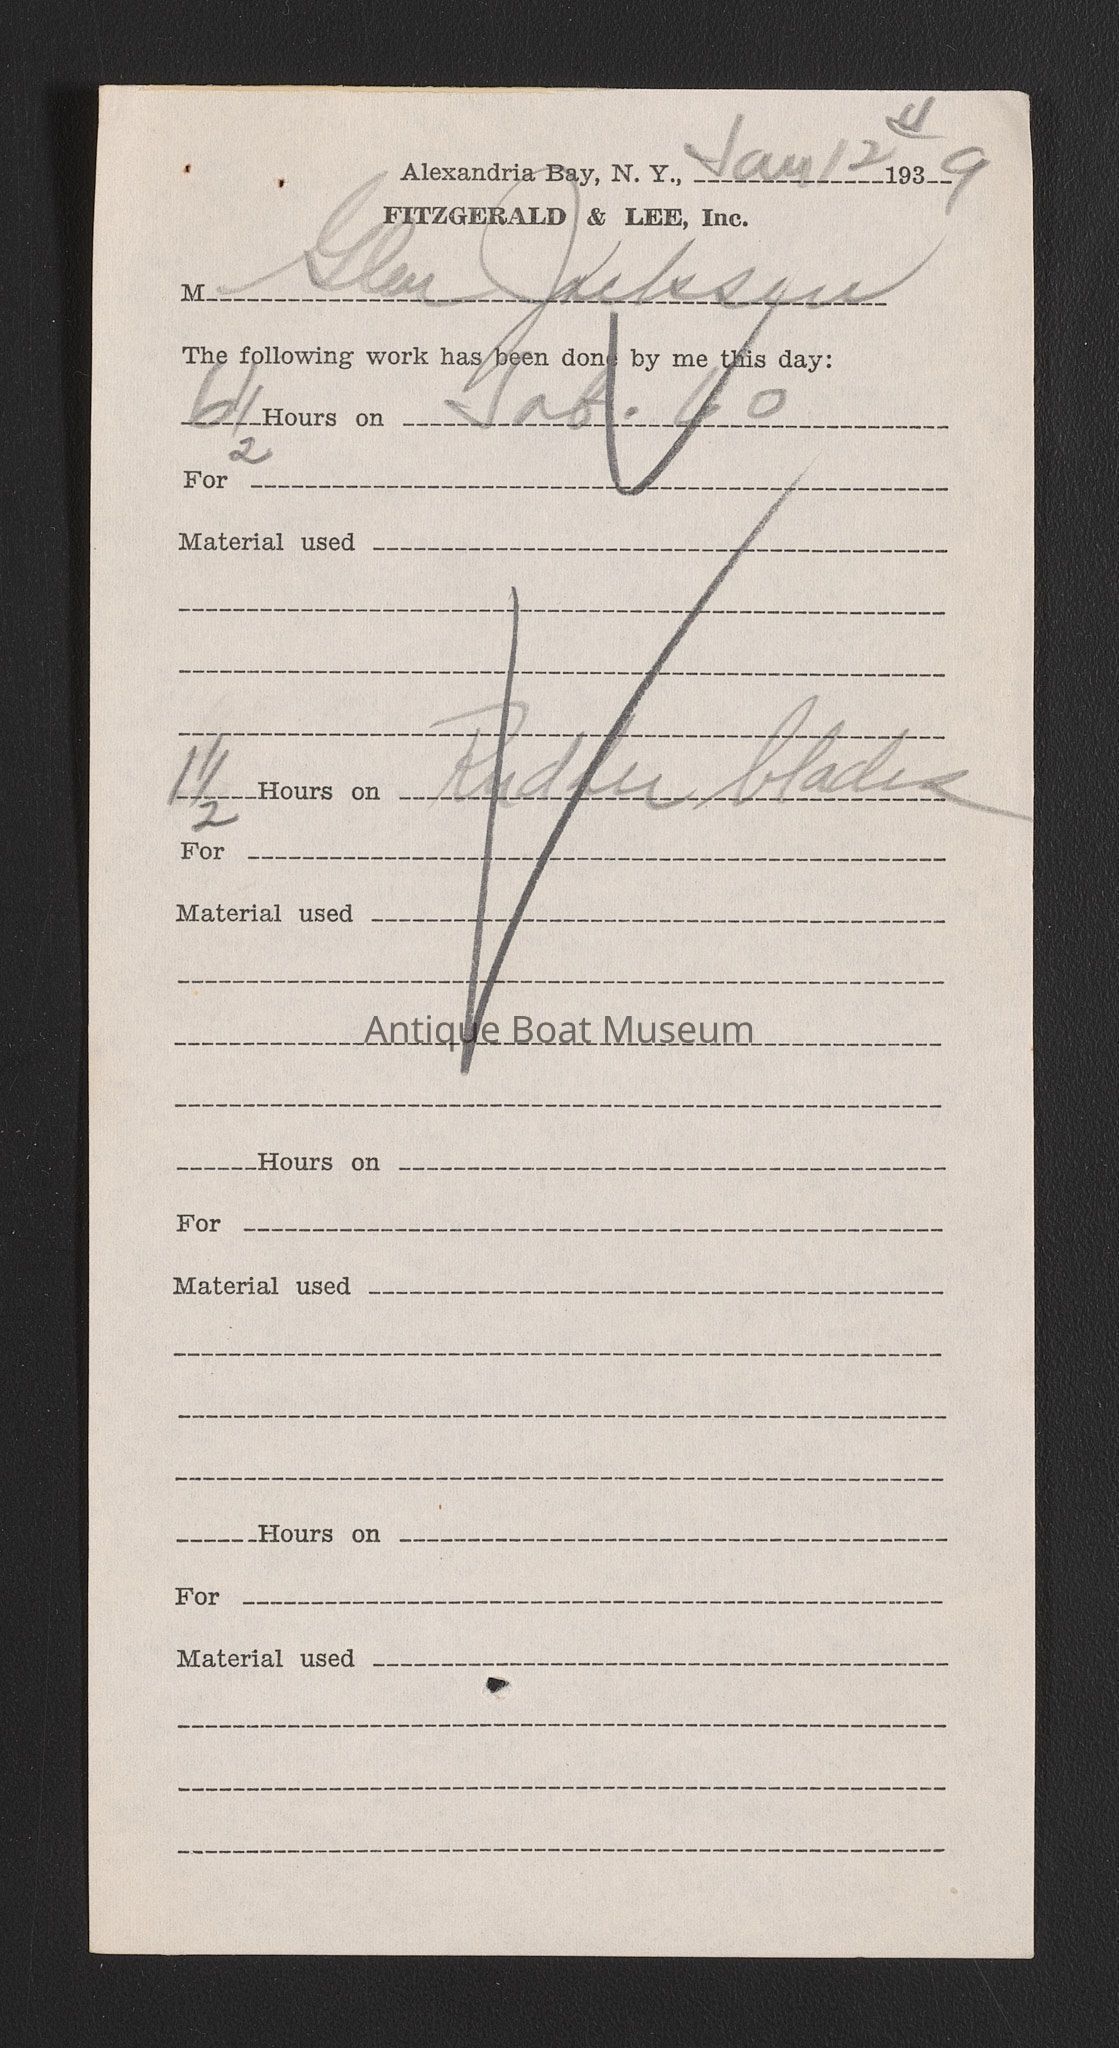 Alexandria Bay, N. Y., Jan 12 1939
FITZGERALD & LEE, Inc.
M Glen Jackson
The following work has been done by me this day:
6 1/2 Hours on Job. 60
For
Material used
1 1/2 Hours on Rudder blades
For
Material used
Antique Boat Museum
Hours on
For
Material used
Hours on
For
Material used